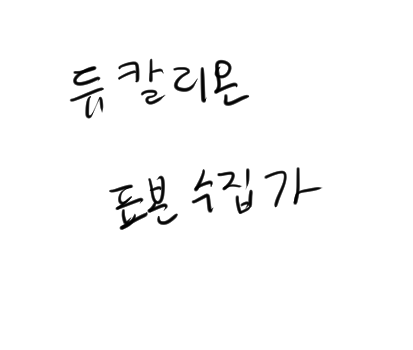 듀칼리온
표본 수집가